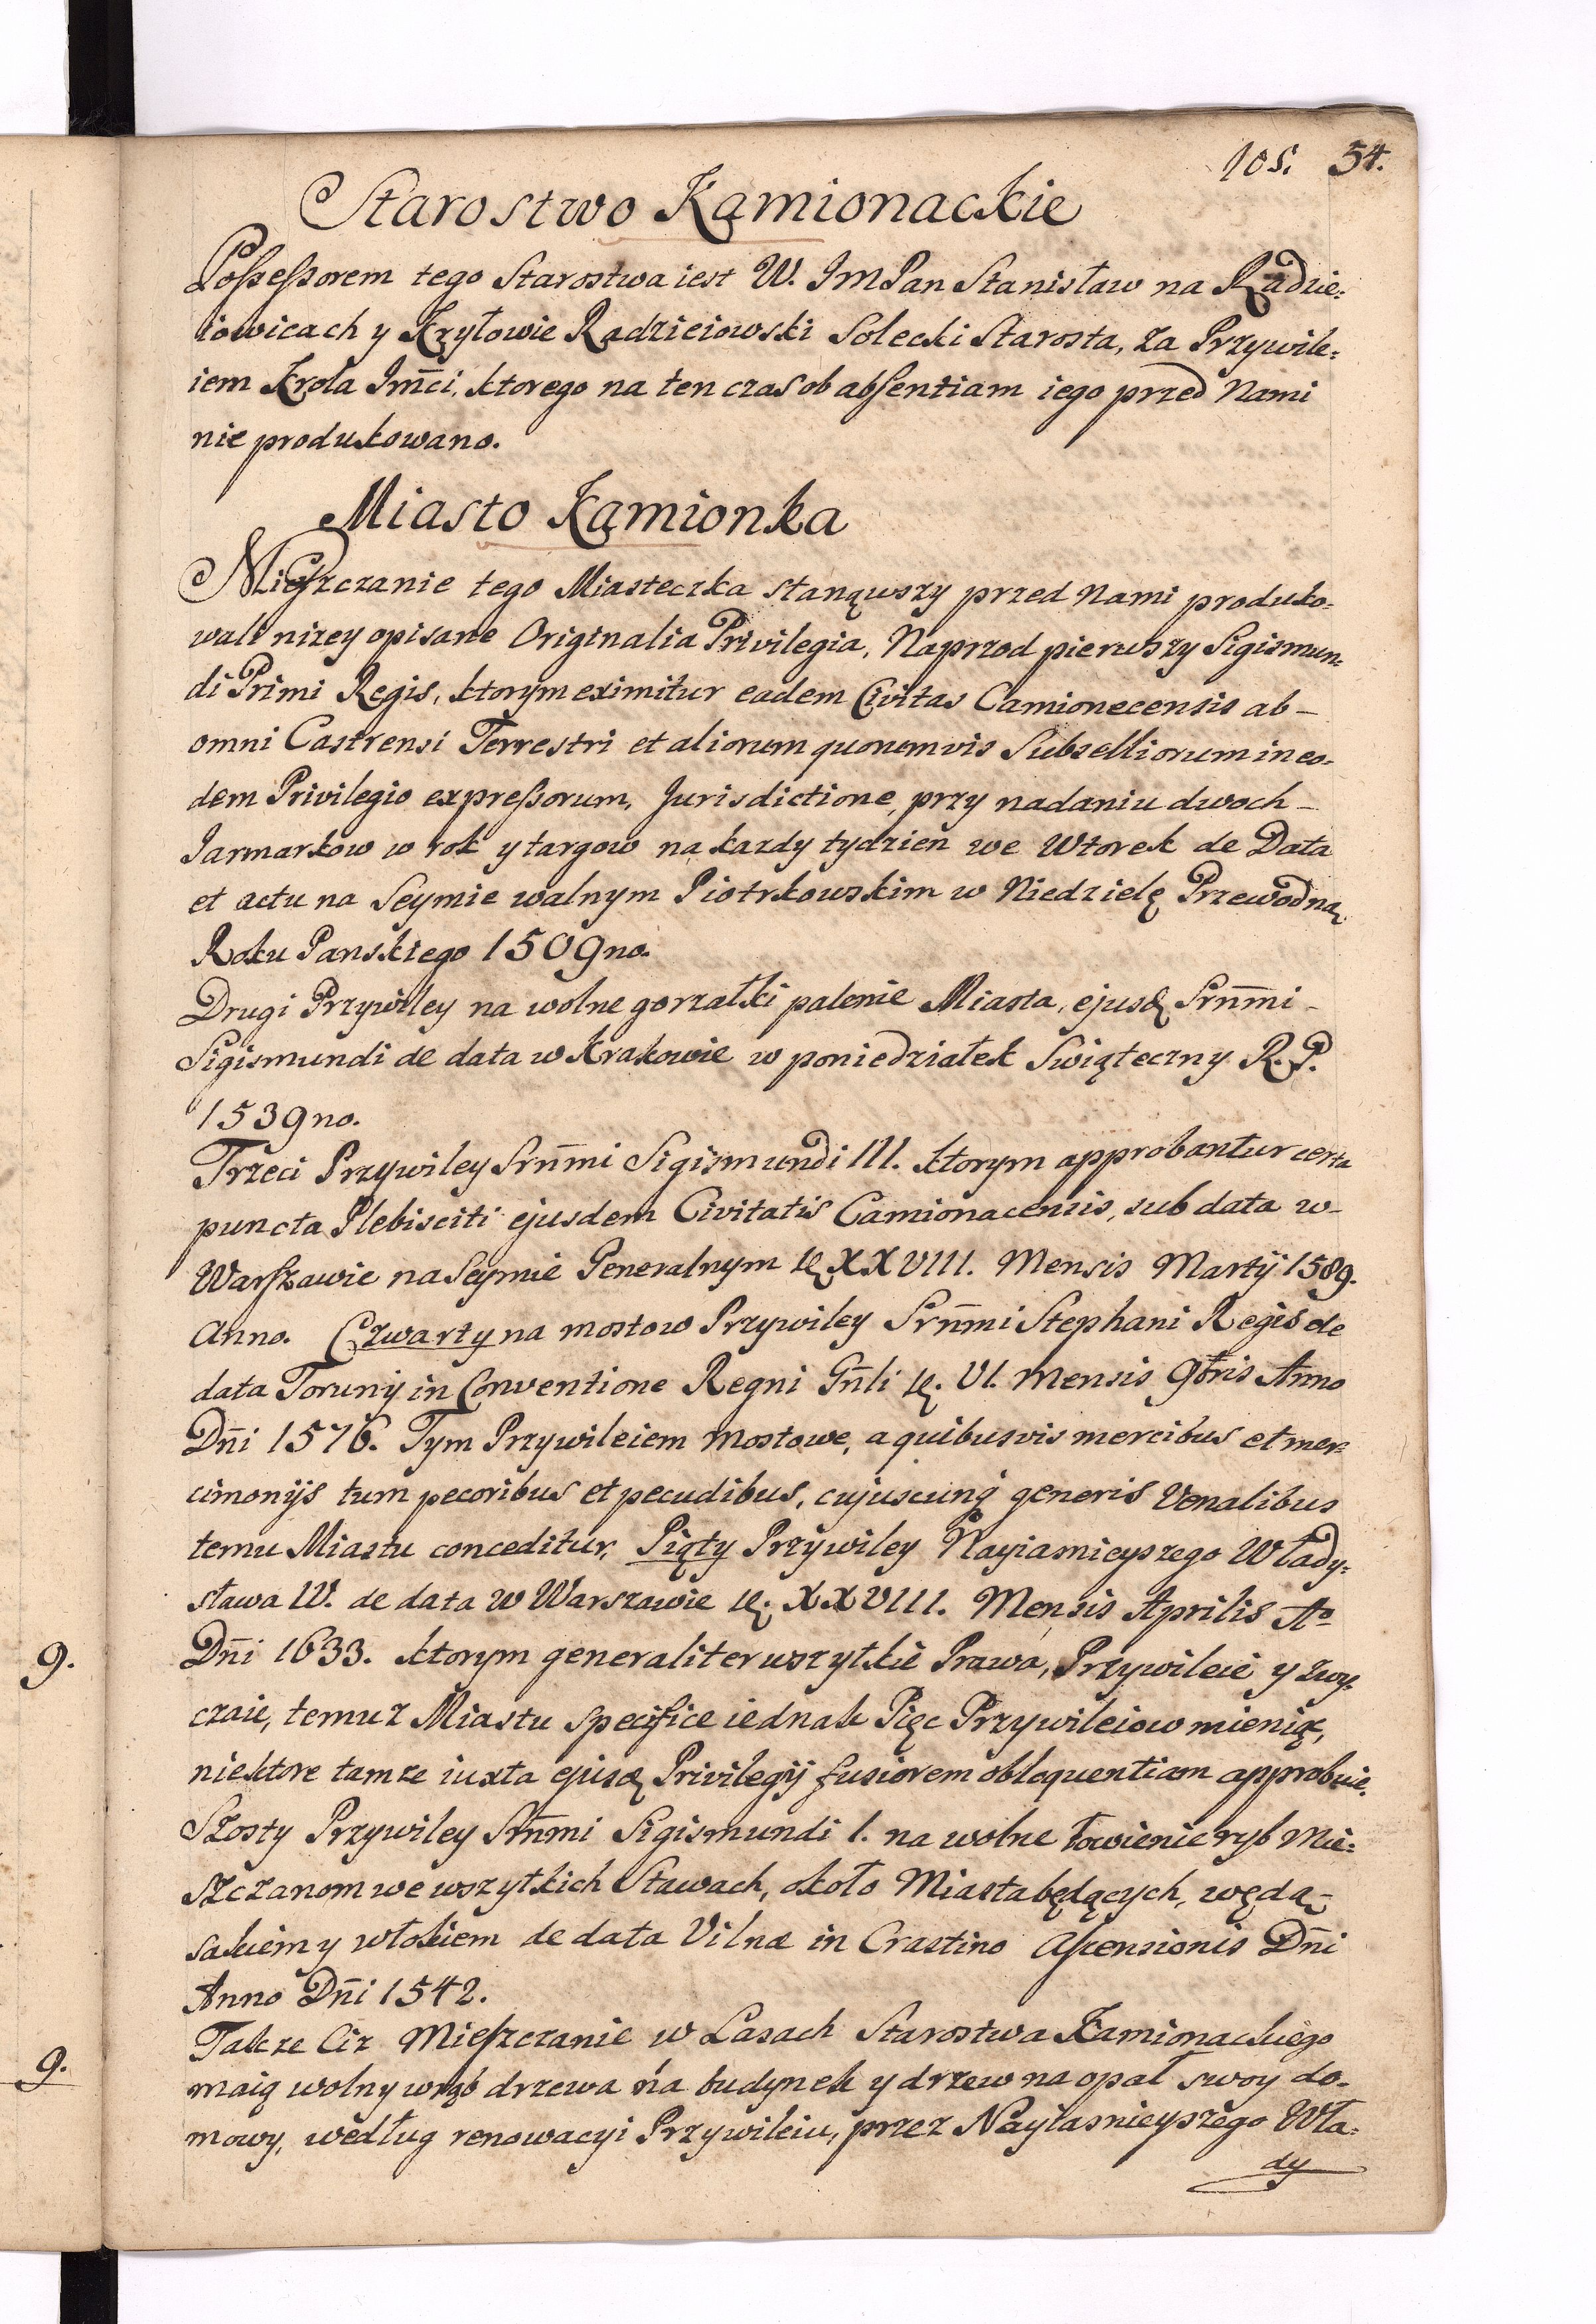 105. 54.
Starostwo Kamionackie
Possessorem tego Starostwa iest W. JMPan Stanisław na Radzie-
iowicach y Kryłowie Radzieiowski Solecki Starosta, za Przywile-
iem Krola Jm̄ci, ktorego na ten czas ob absentiam iego przed Nami
nie produkowano.
Miasto Kamionka
Mieszczanie tego Miasteczka stanąwszy przed Nami produko-
wali nizey opisane Originalia Privilegia, Naprzod pierwszy Sigismun-
di Primi Regis, ktorym eximitur eadem Civitas Camionecensis ab-
omni Castrensi Terrestri et aliorum quorumvis Subselliorum in eo-
dem Privilegio expressorum, Jurisdictione, przy nadaniu dwoch-
Jarmarkow w rok y targow na kazdy tydzien we Wtorek de Data
et actu na Seymie walnym Piotrkowskim w Niedzielę Przewodną
Roku Panskiego 1509no.
Drugi Przywiley na wolne gorzałki palenie Miasta, ejusd Srn̄mi-
Sigismundi de data w Krakowie w poniedziałek Swiąteczny R. P.
1539no.
Trzeci Przywiley Srn̄mi Sigismundi III. ktorym approbantur certa
puncta Plebisciti ejusdem Civitatis Camionacensis, sub data w-
Warszawie na Seymie Generalnym d. XXVIII. Mensis Martij 1589.
Anno. Czwarty na mostow Przywiley Srn̄mi Stephani Regis de
data Torunij in Conventione Regni Gn̄li d. VI. Mensis 9bris Anno
Dn̄i 1576. Tym Przywileiem mostowe, a quibusvis mercibus et mer-
cimonijs tum pecoribus et pecudibus, cujuscunq generis Venalibus
temu Miastu conceditur, Piąty Przywiley Nayiasnieyszego Włady-
sława IV. de data w Warszawie d. XXVIII. Mensis Aprilis Ao
Dn̄i 1633. ktorym generaliter wszytkie Prawa, Przywileie y zwy-
czaie, temuz Miastu specifice iednak Pięc Przywileiow mienią,
niektore tamze iuxta ejusd Privilegij fusiorem obloquentiam approbuie.
Szosty Przywiley Srn̄mi Sigismundi I. na wolne łowienie ryb Mie-
szczanom we wszytkich Stawach, około Miasta będących, wędą-
sakiem y włokiem de data Vilnæ in Crastino Ascensionis Dn̄i
Anno Dn̄i 1542.
Takze Ciz Mieszczanie w Lasach Starostwa Kamionackiego
maią wolny wrąb drzewa na budynek y drzew na opał swoy do-
mowy, według renowacyi Przywileiu, przez Nayiasnieyszego Wła-
dy
9.
9.